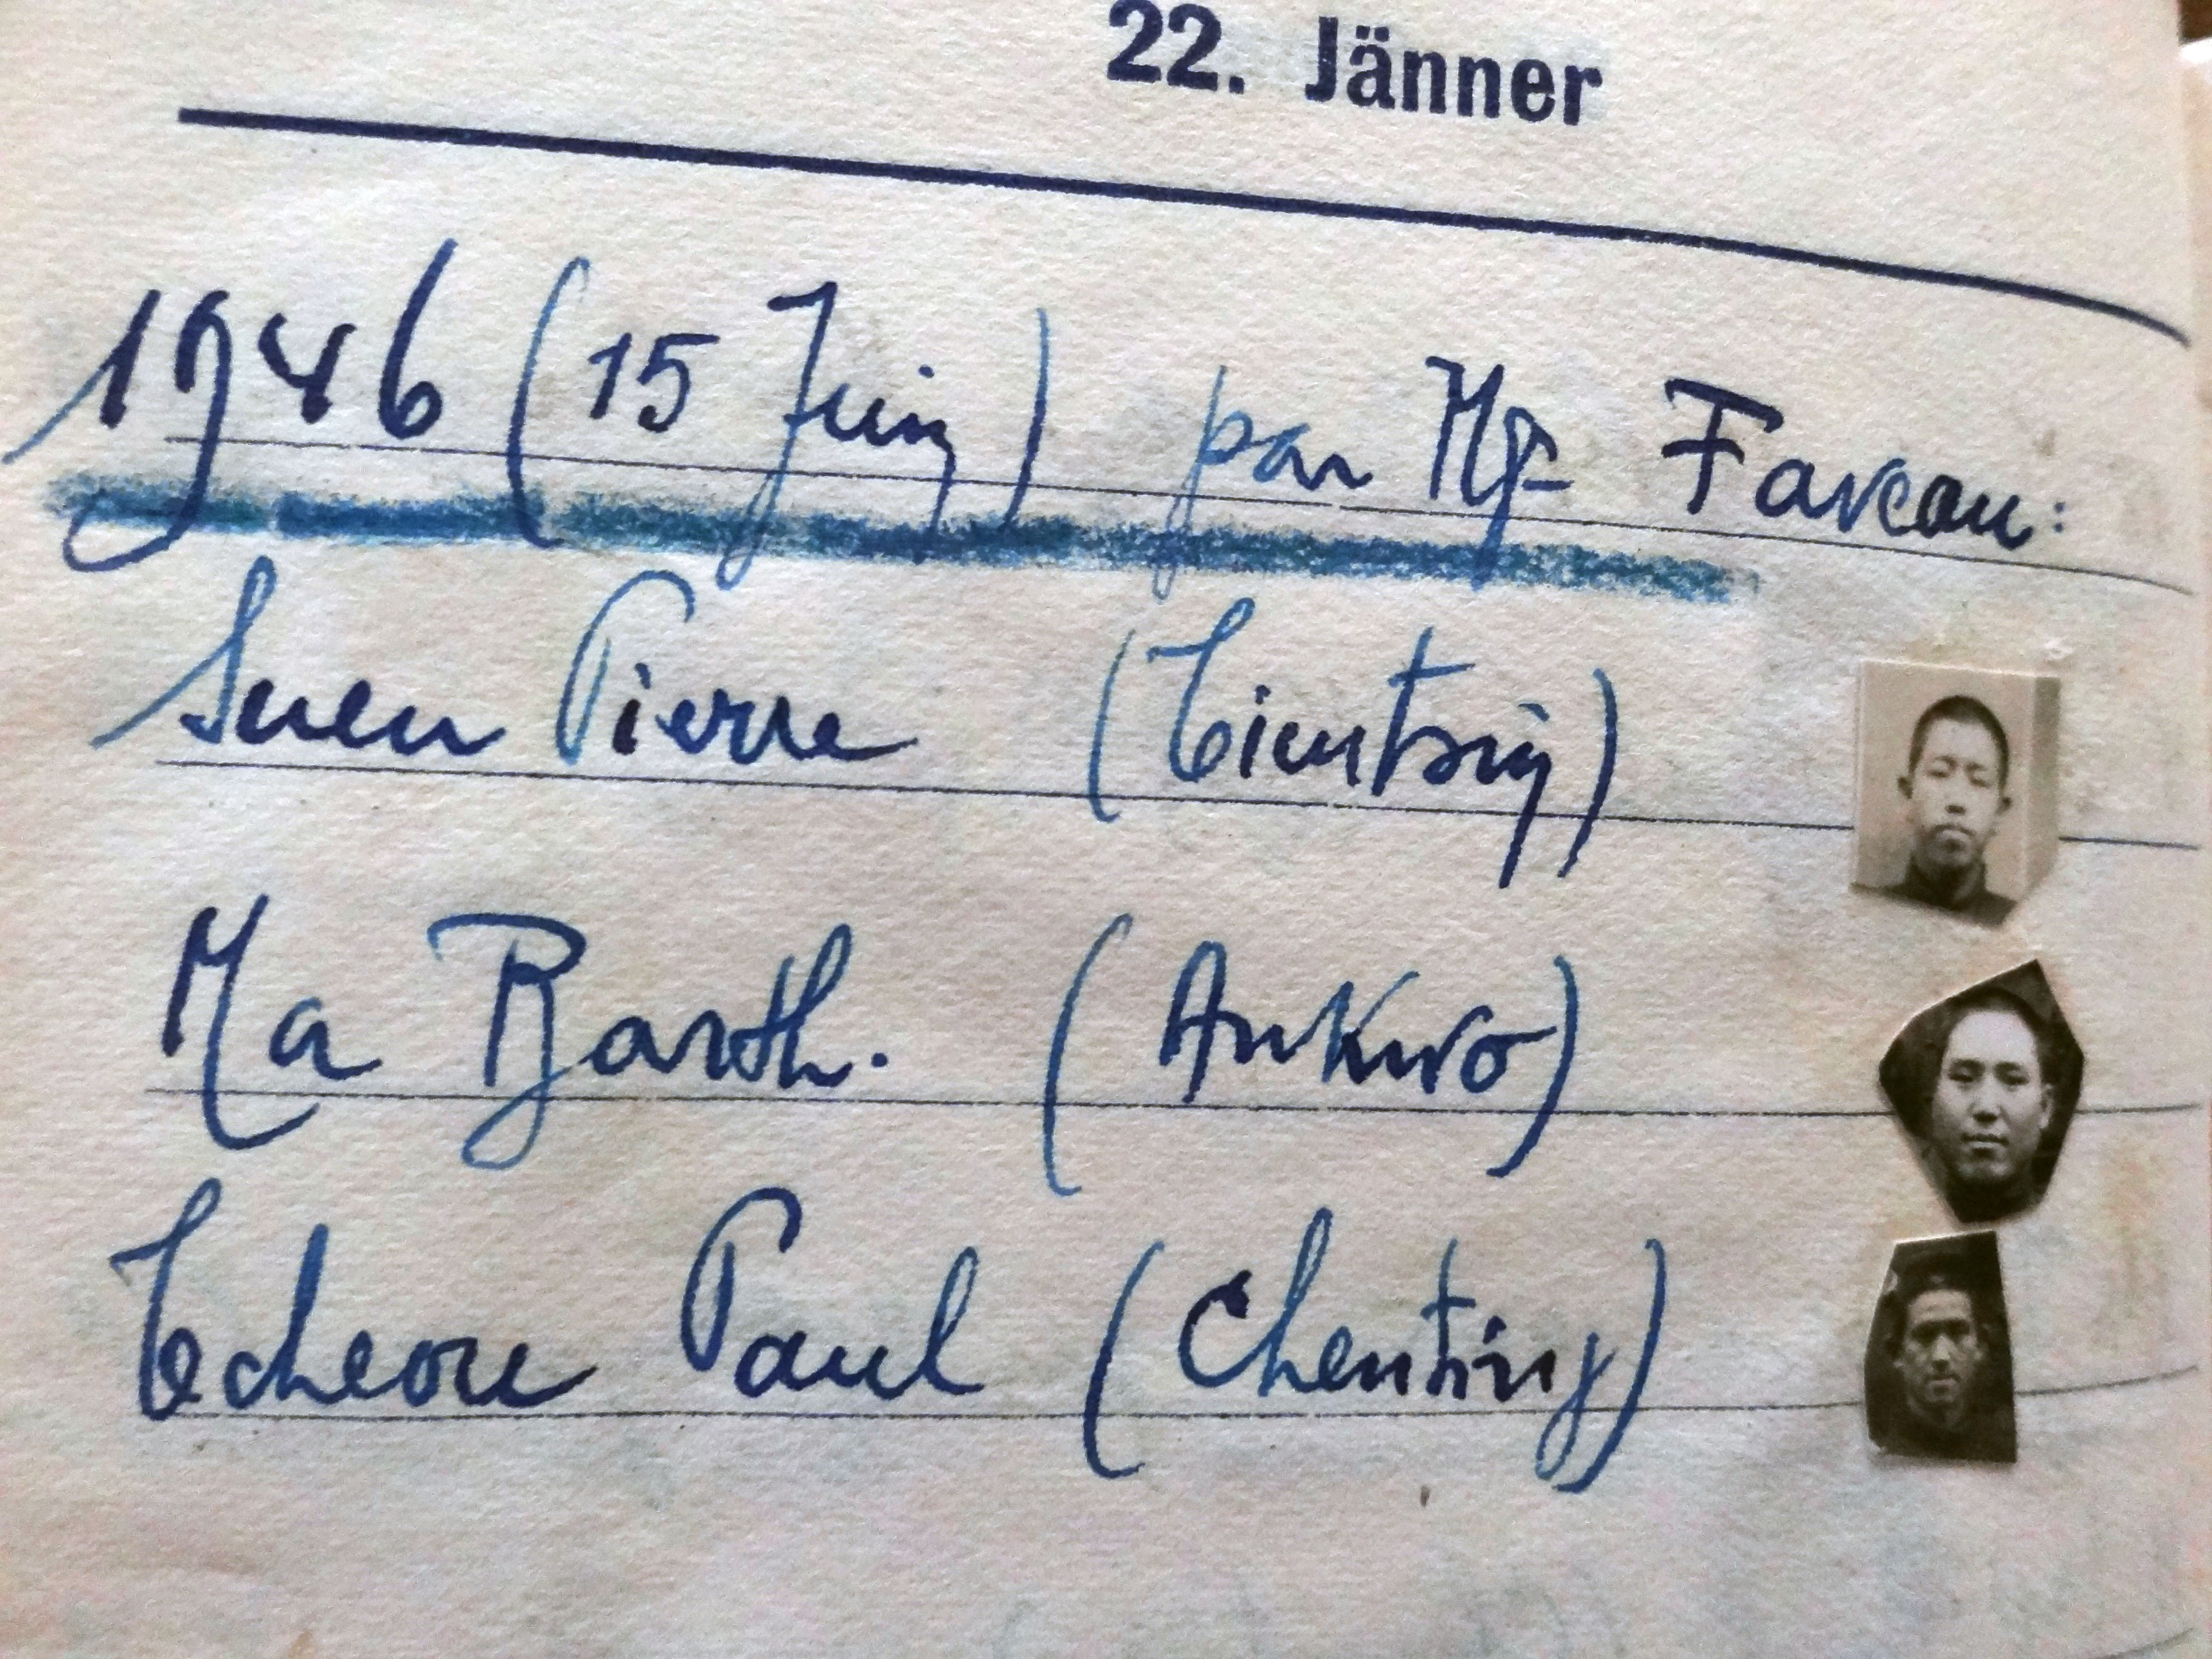 22. Jänner
1946 (15 Juin) par Mgr Faveau:
Suen Pierre (Tientsin)
Ma Barth. (Ankwo)
Tcheou Paul (Chenting)